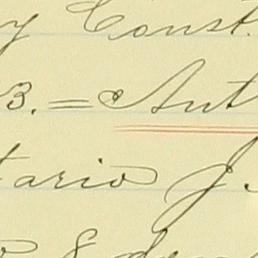 y Const.
B. = Ant
tario J.